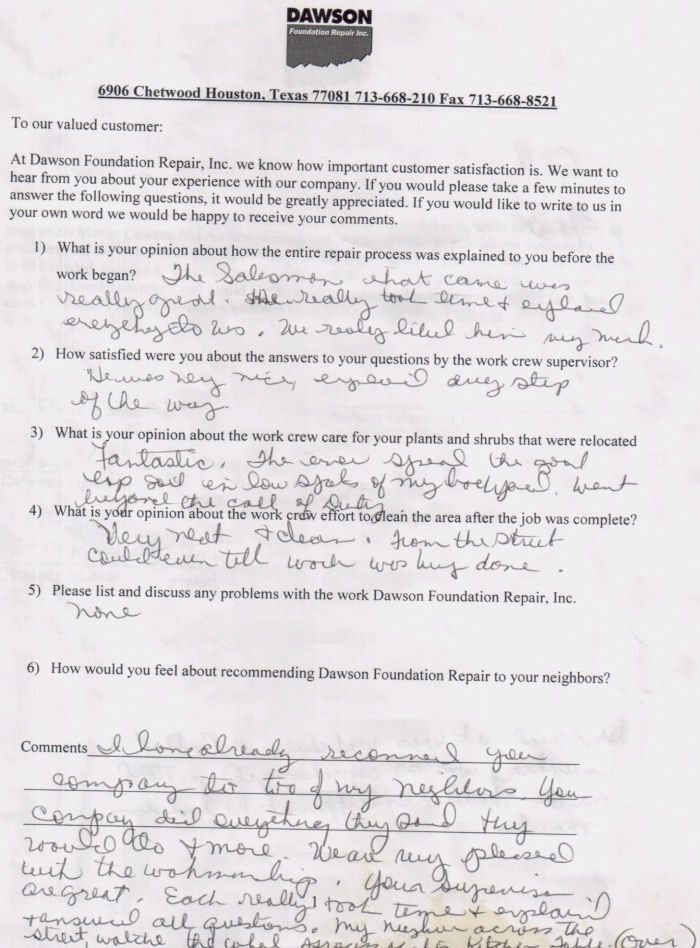 DAWSON
Foundation Repair Inc.
6906 Chetwood Houston, Texas 77081 713-668-210 Fax 713-668-8521
To our valued customer:
At Dawson Foundation Repair, Inc. we know how important customer satisfaction is. We want to
hear from you about your experience with our company. If you would please take a few minutes to
answer the following questions, it would be greatly appreciated. If you would like to write to us in
your own word we would be happy to receive your comments.
1) What is your opinion about how the entire repair process was explained to you before the
work began? The Salesman that came was
really great. He really took time & explained
to us. We really liked him very much.
2) How satisfied were you about the answers to your questions by the work crew supervisor?
He was very nice, every step
of the way.
3) What is your opinion about the work crew care for your plants and shrubs that were relocated
Fantastic. The even spread the good
soil in low spots of my backyard. Went
beyond the call of Duty
4) What is your opinion about the work crew effort to clean the area after the job was complete?
Very neat & clean. From the street
could even tell work was being done.
5) Please list and discuss any problems with the work Dawson Foundation Repair, Inc.
none
6) How would you feel about recommending Dawson Foundation Repair to your neighbors?
Comments I have already your
company to two of my neighbors. You
company did everything they said they
would do & more. We are very pleased
with the workmanship. Your
are great. Each really took time & explained
& answered all questions. My across the
street, the (over)